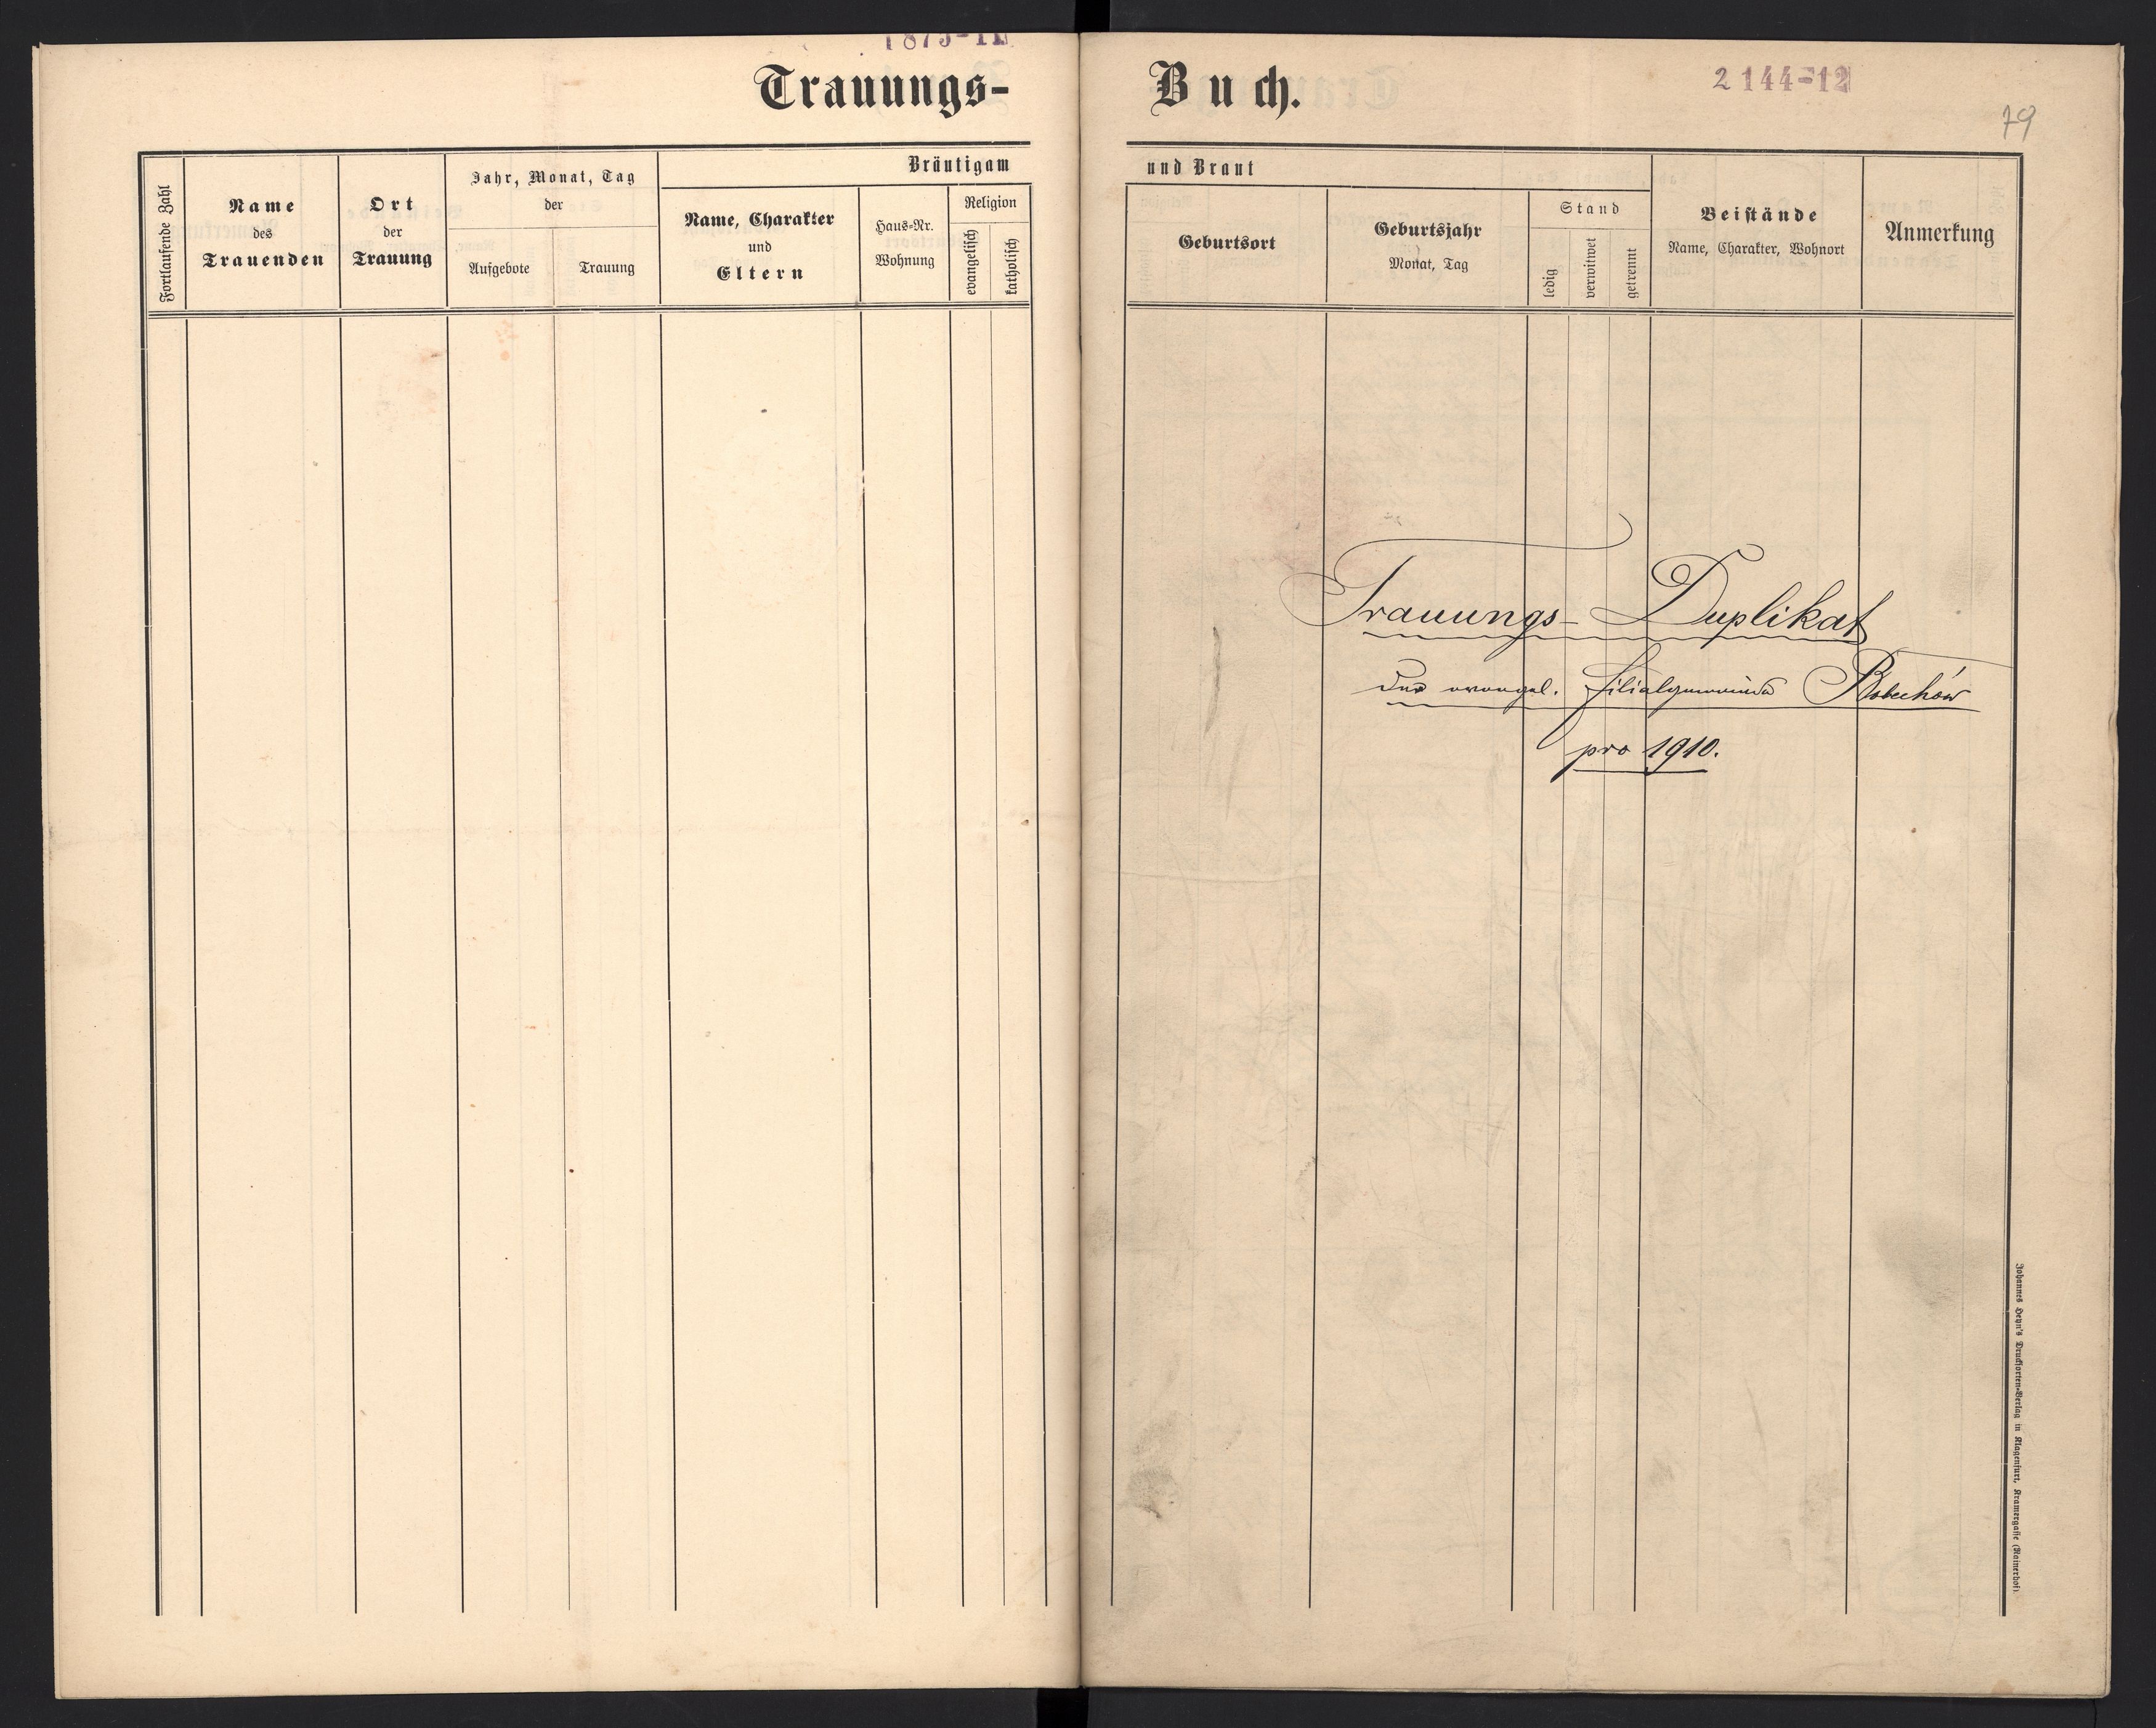 Trauungs-
Buch.
2144-12
79
Fortlaufende Zahl
Name
des
Trauenden
Ort
der
Trauung
Jahr, Monat, Tag
der
Aufgebote
Trauung
Bräutigam
Name, Charakter
und
Eltern
Haus-Nr.
Wohnung
Religion
evangelisch
katholisch
und Braut
Geburtsort
Geburtsjahr
Monat, Tag
Stand
ledig
verwitwet
getrennt
Beistände
Name, Charakter, Wohnort
Anmerkung
Trauungs-Duplikat
der evangel. Filialgemeinde
pro 1910.
Johannes Heyn's Drucksorten-Verlag in Klagenfurt, Kramergasse (Rainerhof).